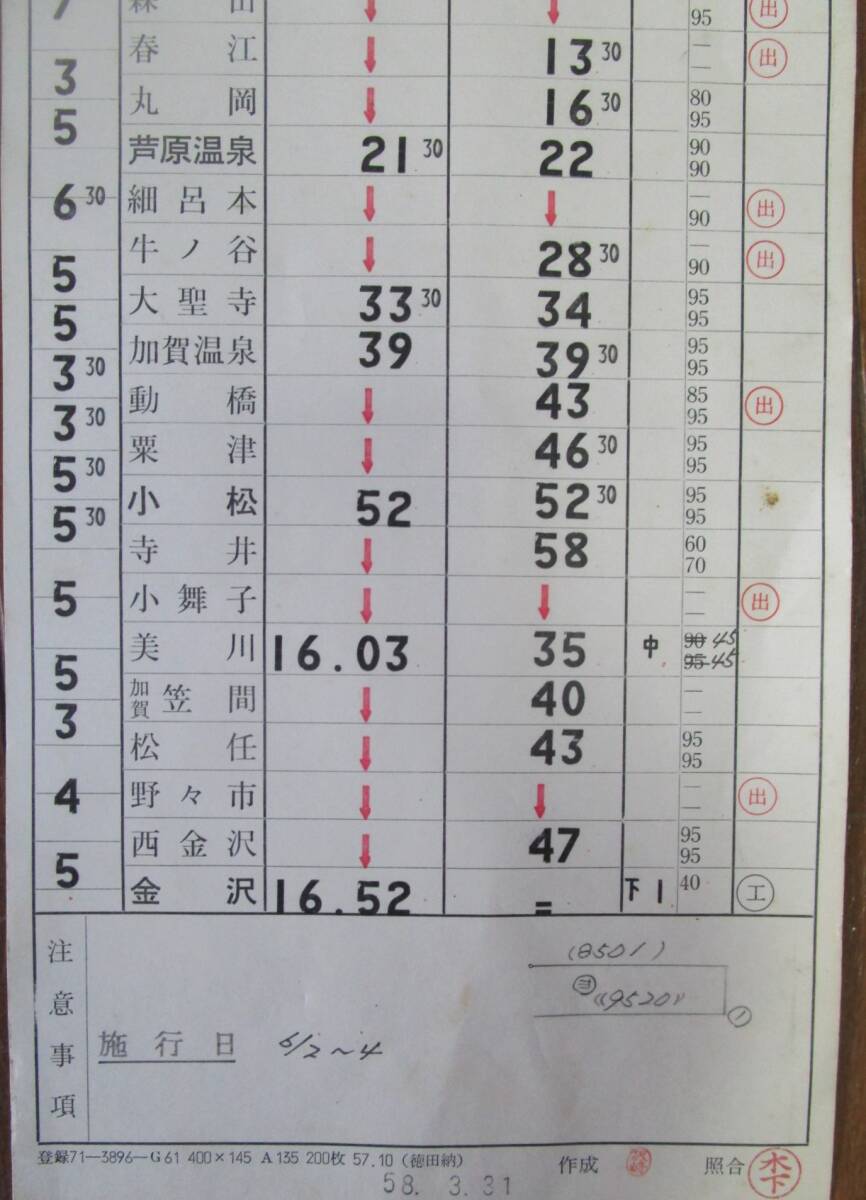 7 森田 ↓ ↓ 95 出
春江 ↓ 13 30 — — 出
3
丸岡 ↓ 16 30 80 95
5
芦原温泉 21 30 22 90 90
6 30 細呂木 ↓ ↓ — 90 出
牛ノ谷 ↓ 28 30 — 90 出
5
大聖寺 33 30 34 95 95
5
加賀温泉 39 39 30 95 95
3 30
動橋 ↓ 43 85 95 出
3 30
粟津 ↓ 46 30 95 95
5 30
小松 52 52 30 95 95
5 30
寺井 ↓ 58 60 70
5 小舞子 ↓ ↓ — — 出
美川 16.03 35 中 90 45 95 45
5
加賀笠間 ↓ 40 — —
3
松任 ↓ 43 95 95
4 野々市 ↓ ↓ — — 出
西金沢 ↓ 47 95 95
5
金沢 16.52 = 下1 40 工
注意事項
(8501)
ヨ 《9520》
施行日 6/2~4
登録71—3896—G61 400×145 A135 200枚 57.10 (徳田納) 作成 照合 木下
58. 3.31